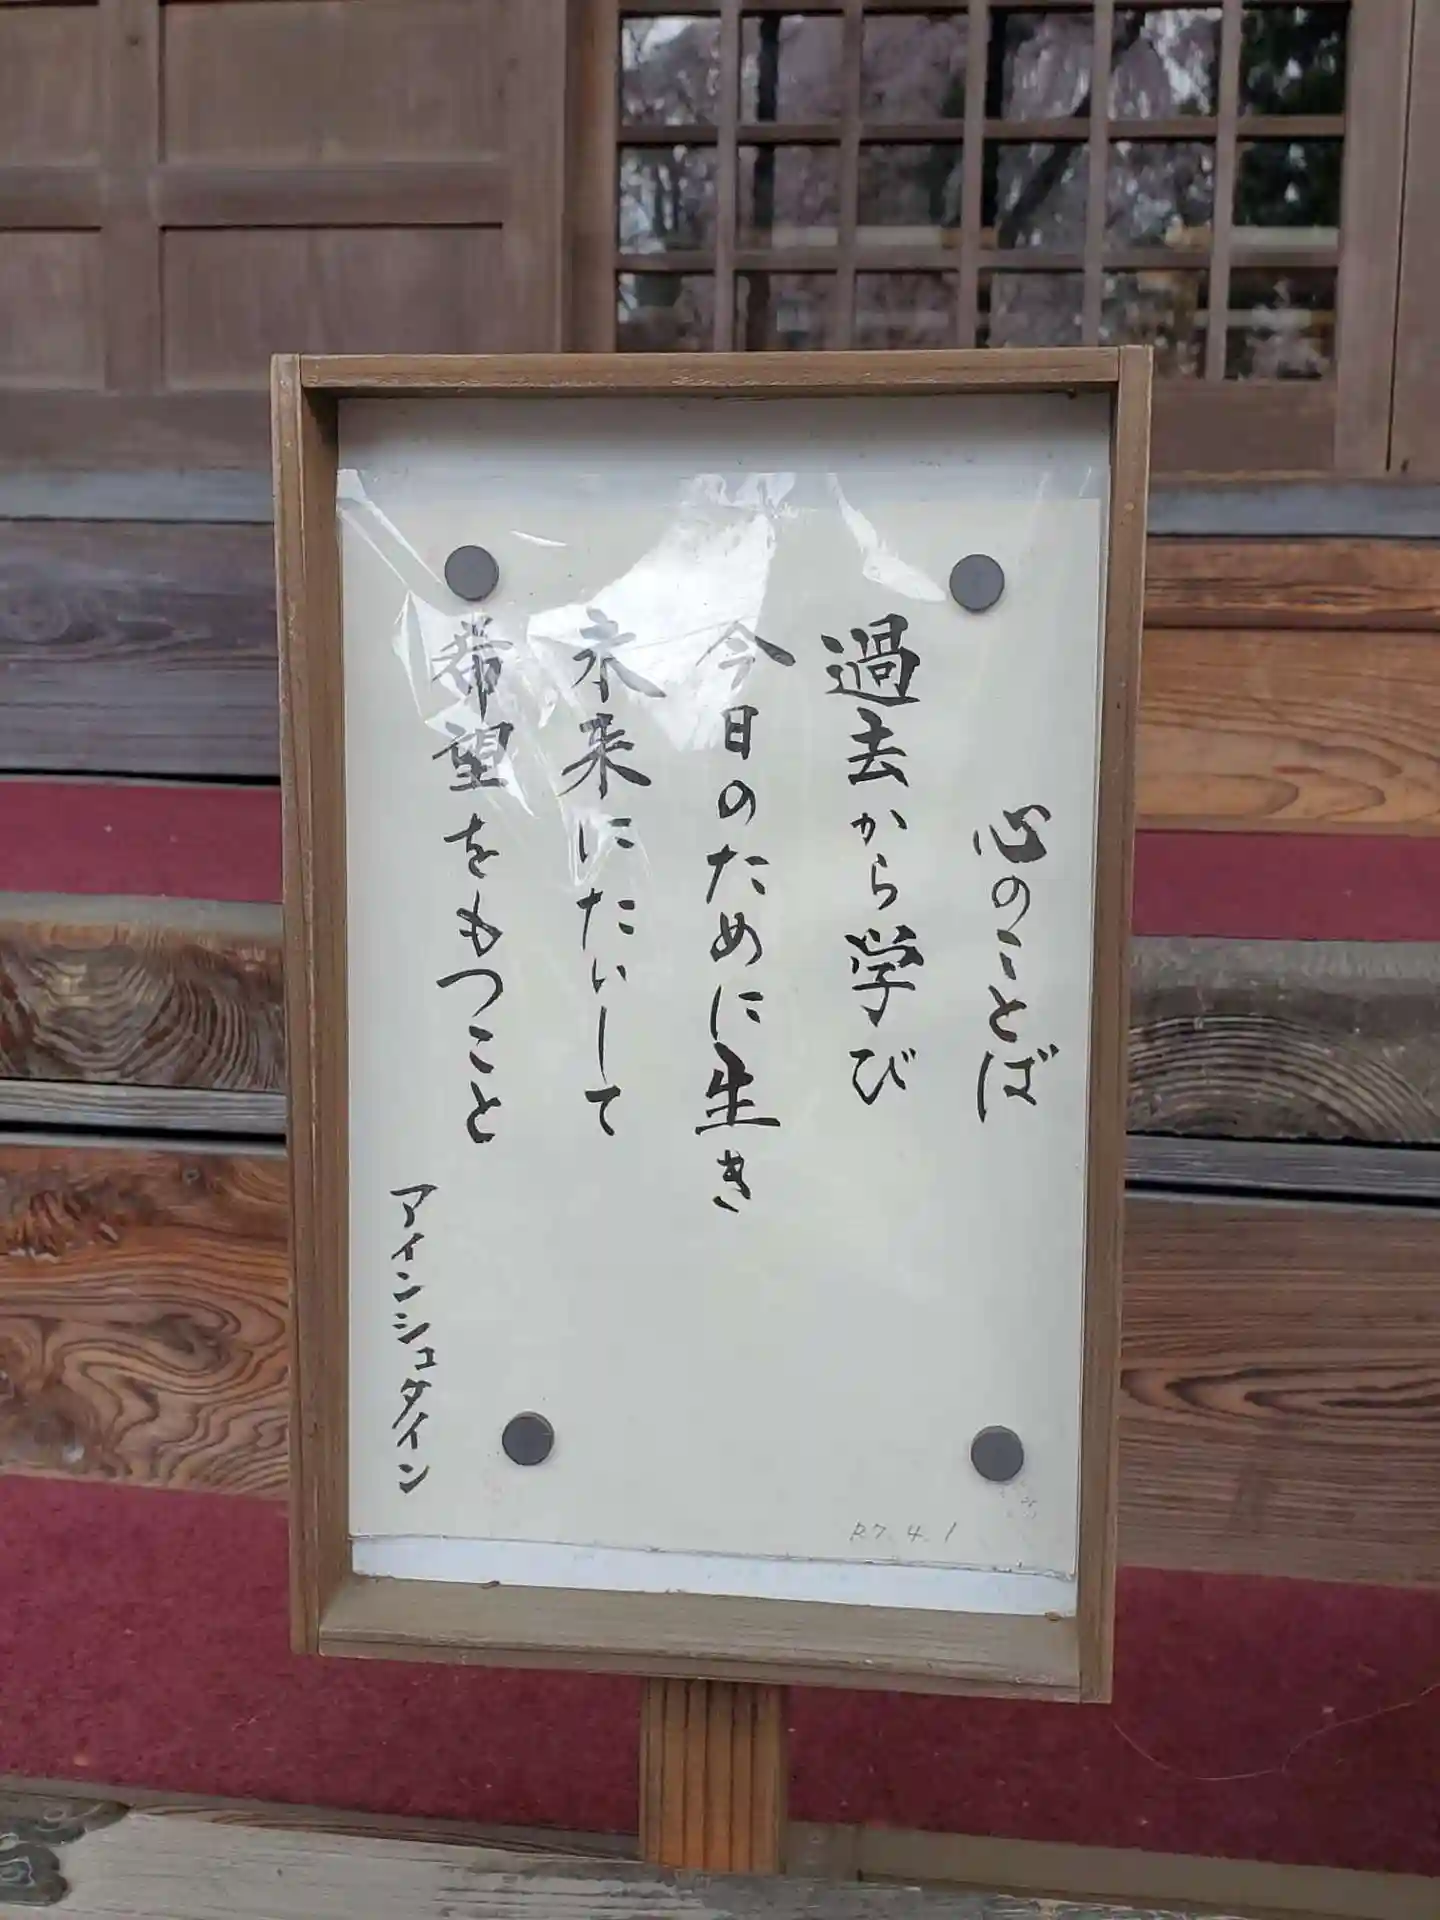 心のことば
過去から学び
今日のために生き
未来にたいして
希望をもつこと
アインシュタイン
R7.4.1